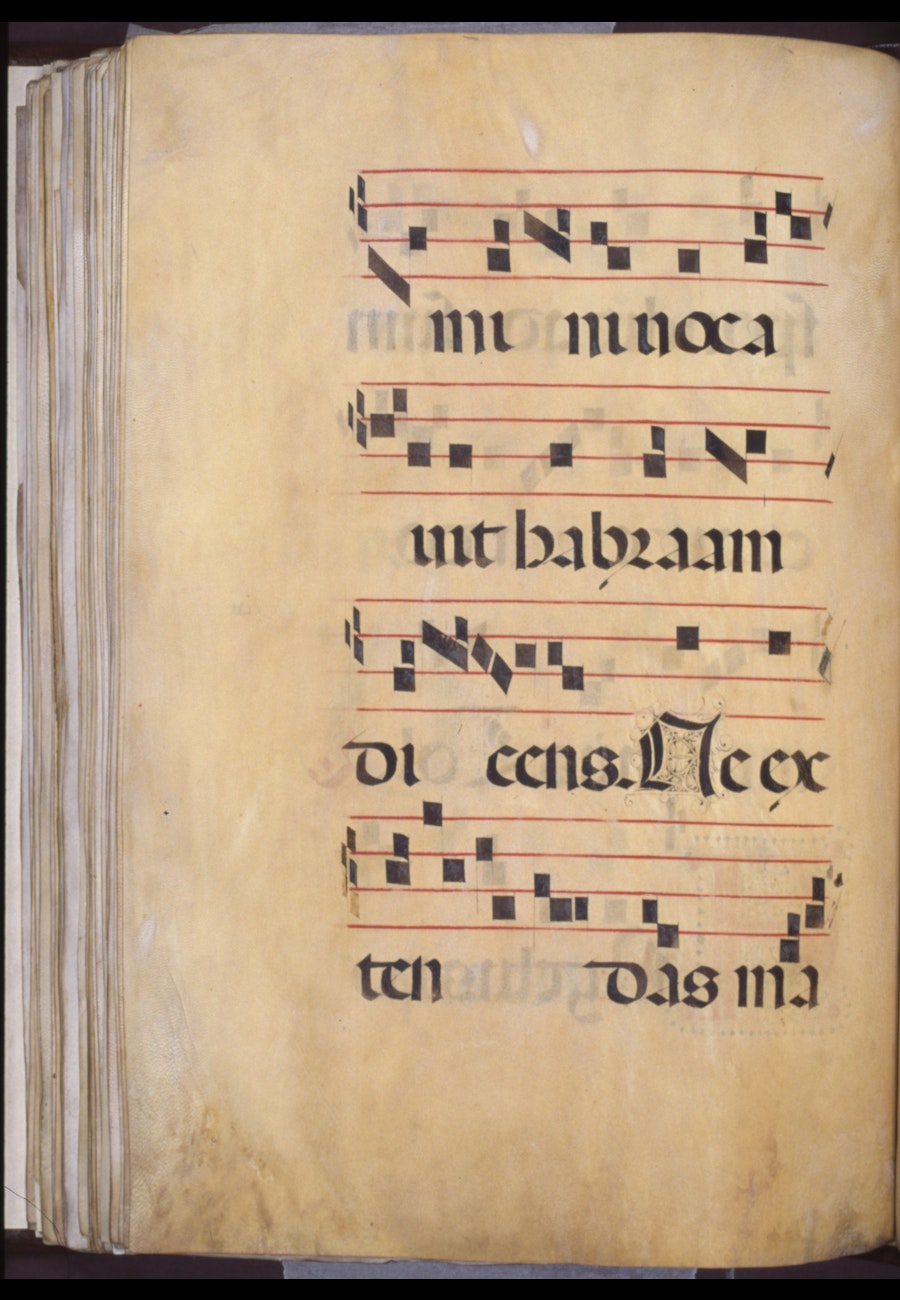 mi ni uoca
uit habraam
di cens. Ne ex
ten das ma